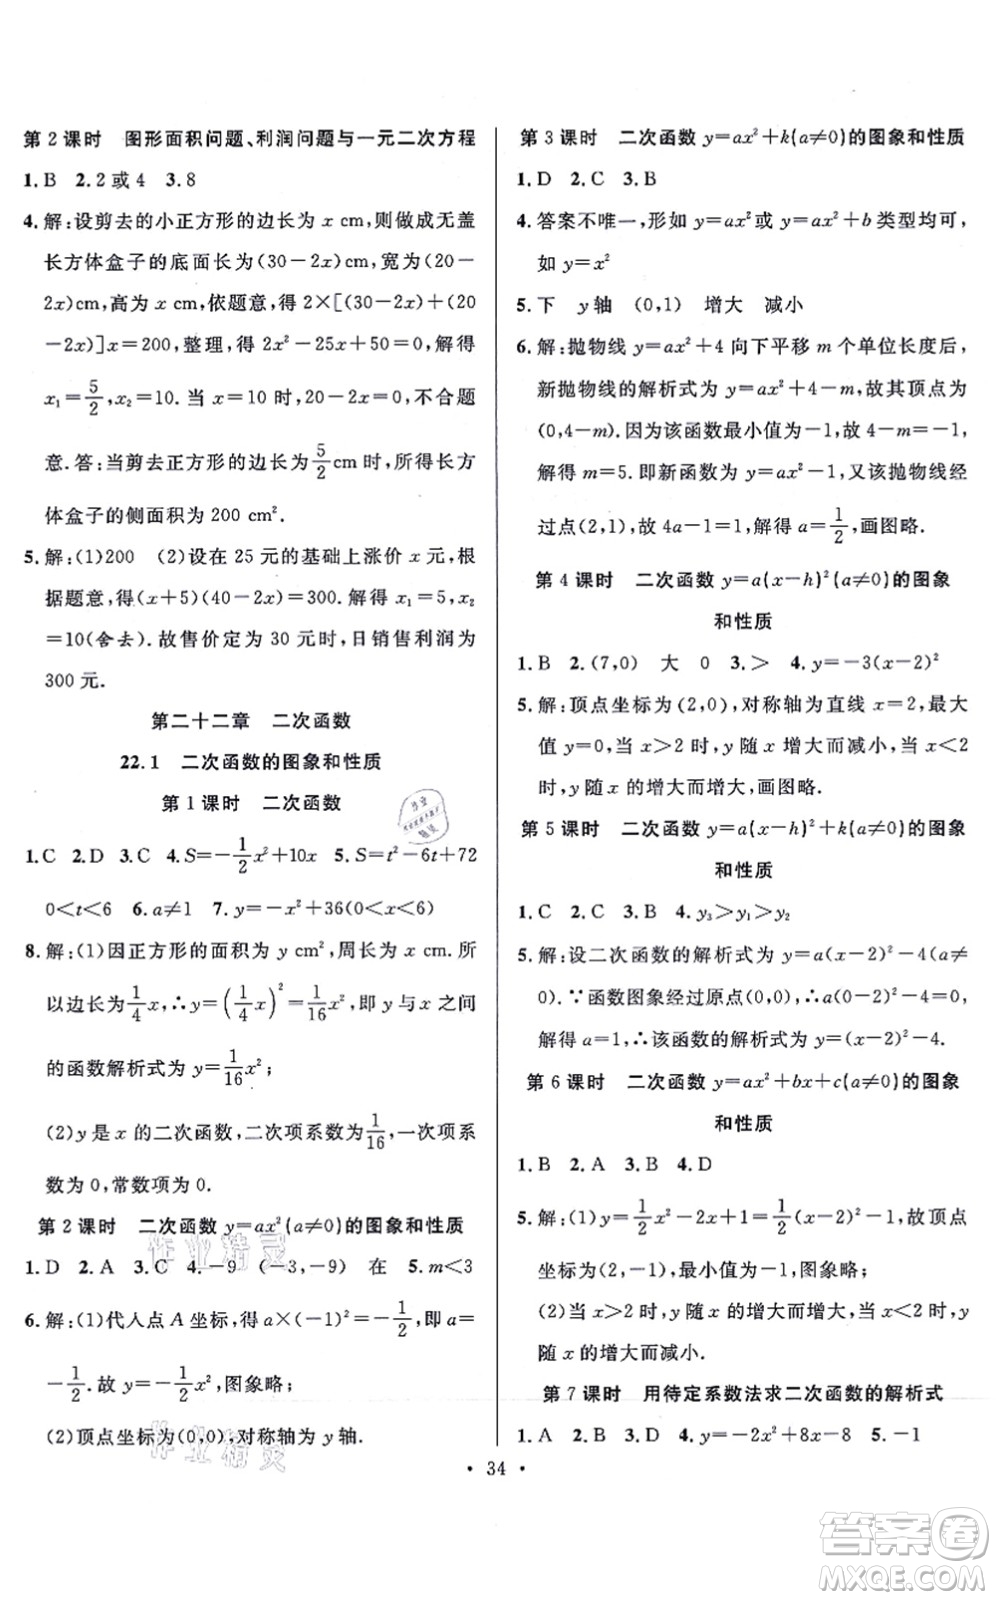 第2课时 图形面积问题、利润问题与一元二次方程
1.B 2.2或4 3.8
4.解:设剪去的小正方形的边长为x cm,则做成无盖
长方体盒子的底面长为(30-2x)cm,宽为(20-
2x)cm,高为x cm,依题意,得2×[(30-2x)+(20
-2x)]x=200,整理,得2x²-25x+50=0,解得
x₁=5/2,x₂=10.当x=10时,20-2x=0,不合题
意.答:当剪去正方形的边长为5/2cm时,所得长方
体盒子的侧面积为200 cm².
5.解:(1)200 (2)设在25元的基础上涨价x元,根
据题意,得(x+5)(240-2x)=300.解得x₁=5,x₂
=10(舍去).故售价定为30元时,日销售利润为
300元.
第二十二章 二次函数
22.1 二次函数的图象和性质
第1课时 二次函数
1.C 2.D 3.C 4.S=-1/2x²+10x 5.S=t²-6t+72
0<t<6 6.a≠1 7.y=-x²+36(0<x<6)
8.解:(1)因正方形的面积为y cm²,周长为x cm.所
以边长为1/4x,∴y=(1/4x)²=1/16x²,即y与x之间
的函数解析式为y=1/16x²;
(2)y是x的二次函数,二次项系数为1/16,一次项系
数为0,常数项为0.
第2课时 二次函数y=ax²(a≠0)的图象和性质
1.D 2.A 3.C 4.-9 (-3,-9) 在 5.m<3
6.解:(1)代人点A坐标,得a×(-1)²=-1/2,即a=
-1/2.故y=-1/2x²,图象略;
(2)顶点坐标为(0,0),对称轴为y轴.
第3课时 二次函数y=ax²+k(a≠0)的图象和性质
1.D 2.C 3.B
4.答案不唯一,形如y=ax²或y=ax²+b类型均可,
如y=x²
5.下 y轴 (0,1) 增大 减小
6.解:抛物线y=ax²+4向下平移m个单位长度后,
新抛物线的解析式为y=ax²+4-m,故其顶点为
(0,4-m).因为该函数最小值为-1,故4-m=-1,
解得m=5.即新函数为y=ax²-1,又该抛物线经
过点(2,1),故4a-1=1,解得a=1/2,画图略.
第4课时 二次函数y=a(x-h)²(a≠0)的图象
和性质
1.B 2.(7,0) 大 0 3.> 4.y=-3(x-2)²
5.解:顶点坐标为(2,0),对称轴为直线x=2,最大
值y=0.当x>2时,y随x的增大而减小,当x<2
时,y随x的增大而增大.画图略.
第5课时 二次函数y=a(x-h)²+k(a≠0)的图象
和性质
1.C 2.C 3.B 4.y₃>y₁>y₂
5.解:设二次函数的解析式为y=a(x-2)²-4(a≠
0).∵函数图象经过原点(0,0),∴a(0-2)²-4=0,
解得a=1,∴该函数的解析式为y=(x-2)²-4.
第6课时 二次函数y=ax²+bx+c(a≠0)的图象
和性质
1.B 2.A 3.B 4.D
5.解:(1)y=1/2x²-2x+1=1/2(x-2)²-1,故顶点
坐标为(2,-1),最小值为-1,图象略;
(2)当x>2时,y随x的增大而增大,当x<2时,y
随x的增大而减小.
第7课时 用待定系数法求二次函数的解析式
1.A 2.B 3.D 4.y=-2x²+8x-8 5.-1
· 34 ·
作业精灵
作业精灵
答案卷
MXQE.COM